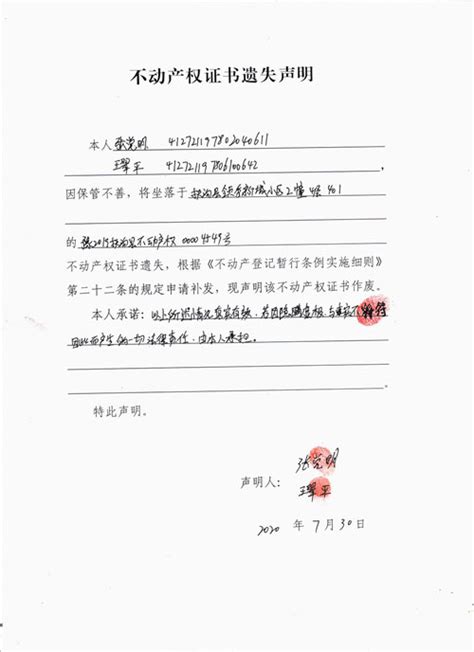 不动产权证书遗失声明
本人张党明 412721197802040611
翠平 412721197806100642
因保管不善，将坐落于扶沟县新城小区2幢 401
的豫2019扶沟县不动产权0004549号
不动产权证书遗失，根据《不动产登记暂行条例实施细则》
第二十二条的规定申请补发，现声明该不动产权证书作废。
本人承诺：以上所述情况真实有效，若因隐瞒虚报与事实不符
因此而产生的一切法律责任，由本人承担。
特此声明。
张党明
声明人：
翠平
2020 年 7 月 30 日